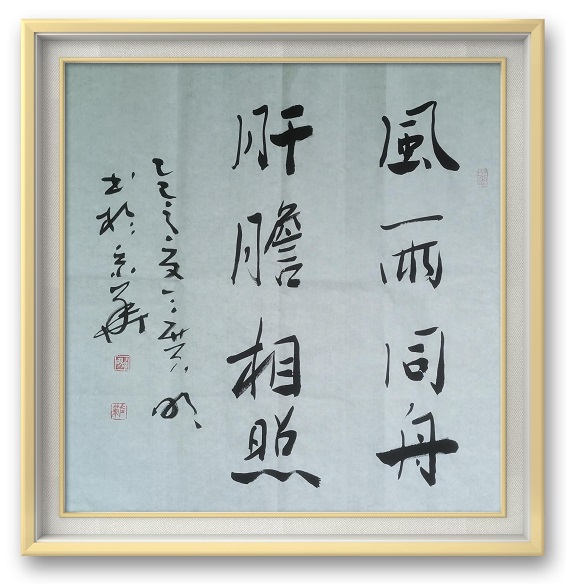 風雨同舟
肝膽相照
乙巳之夏
书於京華